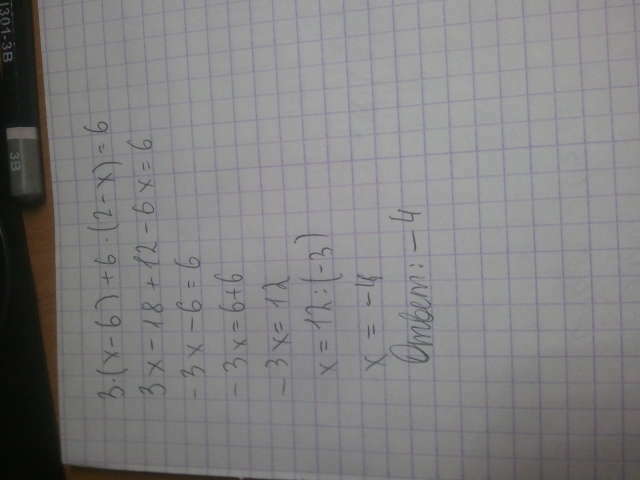 3·(x-6)+6·(2-x)=6
3x-18+12-6x=6
-3x-6=6
-3x=6+6
-3x=12
x=12:(-3)
x=-4
Ответ: -4
1301-3B
3B